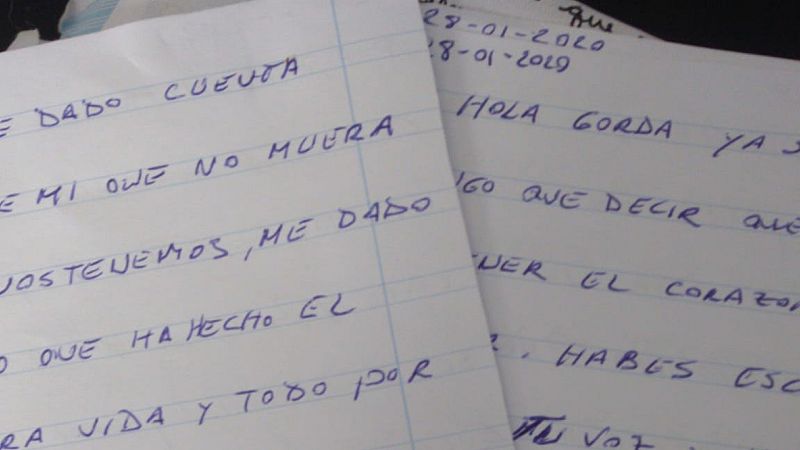 E DADO CUENTA
E MI QUE NO MUERA
NOSTENEMOS, ME DADO
O QUE HA HECHO EL
RA VIDA Y TODO POR
que
28-01-2020
28-01-2020
HOLA GORDA YA S
IGO QUE DECIR QUE
NER EL CORAZON
. HABES ESC
TU VOZ